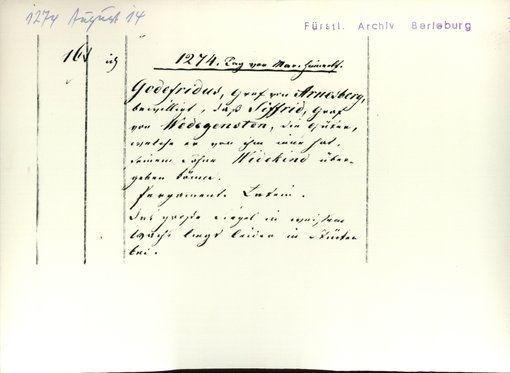 1274 August 14
Fürstl. Archiv Berleburg
16
1274. Tag vor Mar. Himmelf.
Godefridus, Graf von Arnesberg,
bewilligt, daß Siffrid, Graf
von Wedegensten, die Güter,
welche er von ihm inne hat,
seinem Sohne Widekind über-
geben könne.
Pergament. Latein.
Das große Siegel in weißem
Wachs liegt leider in Stücken
bei.